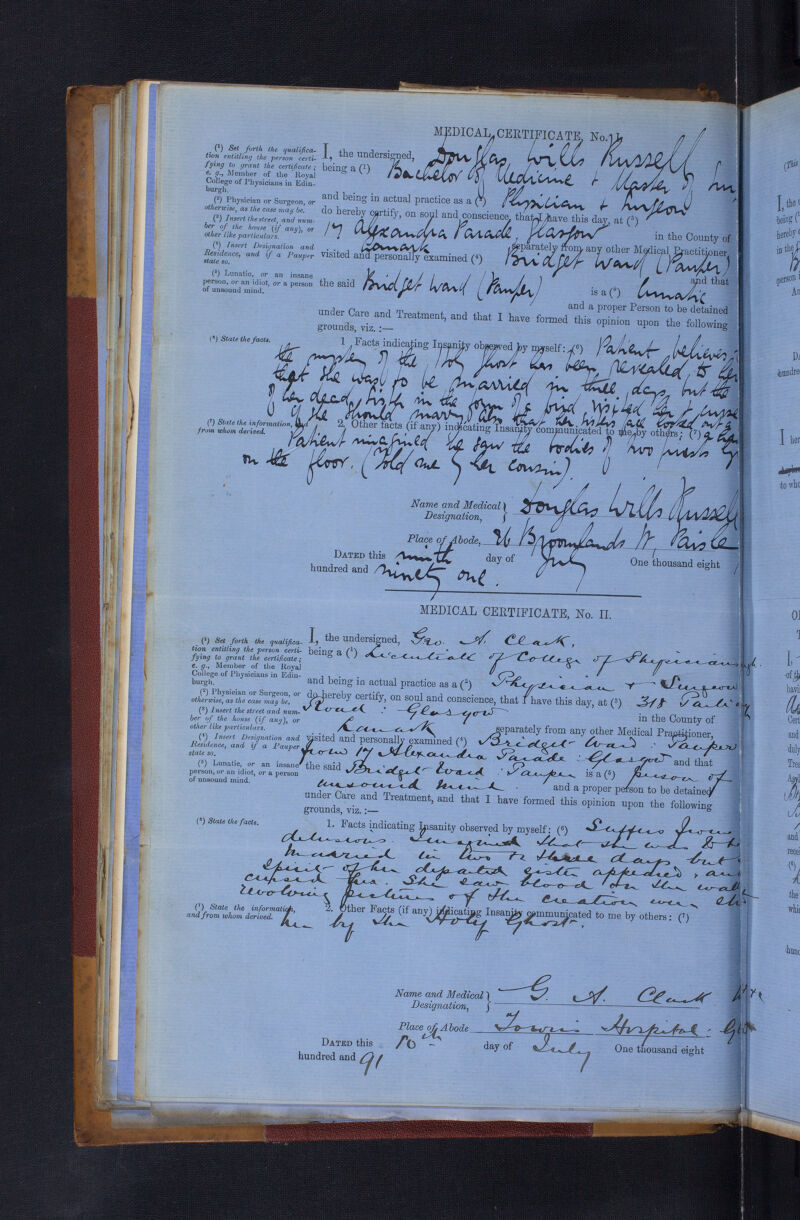 MEDICAL CERTIFICATE, No. I.
(1) Set forth the qualifica-
tion entitling the person certi-
fying to grant the certificate;
e. g., Member of the Royal
College of Physicians in Edin-
burgh.
(2) Physician or Surgeon, or
otherwise, as the case may be.
(3) Insert the street, and num-
ber of the house (if any), or
other like particulars.
(4) Insert Designation and
Residence, and if a Pauper
state so.
(5) Lunatic, or an insane
person, or an idiot, or a person
of unsound mind.
(6) State the facts.
(7) State the information, and
from whom derived.
I, the undersigned, Douglas Wills Russell
being a (1) Bachelor of Medicine & Master of Sur
and being in actual practice as a (2) Physician & Surgeon
do hereby certify, on soul and conscience, that I have this day, at (3)
17 Alexandra Parade, Glasgow in the County of
Lanark separately from any other Medical Practitioner,
visited and personally examined (4) Bridget Ward (Pauper)
and that
the said Bridget Ward (Pauper) is a (5) Lunatic
and a proper Person to be detained
under Care and Treatment, and that I have formed this opinion upon the following
grounds, viz. :—
1. Facts indicating Insanity observed by myself: (6) Patient believes
the mystery of the Holy Ghost has been revealed to her
that she was to be married in three days but the
of her dead sister in the form of a bird visited her &
if she should marry also that her sisters are
2. Other facts (if any) indicating Insanity communicated to me by others; (7)
Patient imagined he saw the bodies of two priests
on the floor. (Told me by her cousin)
Name and Medical Designation, } Douglas Wills Russell
Place of Abode, 26 Broomlands St, Paisle
DATED this ninth day of July One thousand eight
hundred and ninety one.
MEDICAL CERTIFICATE, No. II.
(1) Set forth the qualifica-
tion entitling the person certi-
fying to grant the certificate;
e. g., Member of the Royal
College of Physicians in Edin-
burgh.
(2) Physician or Surgeon, or
otherwise, as the case may be.
(3) Insert the street and num-
ber of the house (if any), or
other like particulars.
(4) Insert Designation and
Residence, and if a Pauper
state so.
(5) Lunatic, or an insane
person, or an idiot, or a person
of unsound mind.
(6) State the facts.
(7) State the information,
and from whom derived.
I, the undersigned, Geo. A. Clark,
being a (1) Licentiate of College of Physicians
and being in actual practice as a (2) Physician & Surgeon
do hereby certify, on soul and conscience, that I have this day, at (3) 318
Road : Glasgow in the County of
Lanark separately from any other Medical Practitioner,
visited and personally examined (4) Bridget Ward : Pauper
from 17 Alexandra Parade : Glasgow and that
the said Bridget Ward : Pauper is a (5) person of
unsound mind. and a proper person to be detained
under Care and Treatment, and that I have formed this opinion upon the following
grounds, viz. :—
1. Facts indicating Insanity observed by myself: (6) Suffers from
delusions. Imagined that she was to be
married in two or three days but
Spirit of her departed sister appeared, and
cursed her. She saw blood on the wall
revolving pictures of the creation were
2. Other Facts (if any) indicating Insanity communicated to me by others: (7)
her by the Holy Ghost.
Name and Medical Designation, } G. A. Clark
Place of Abode Towns Hospital :
DATED this 10th day of July One thousand eight
hundred and 91